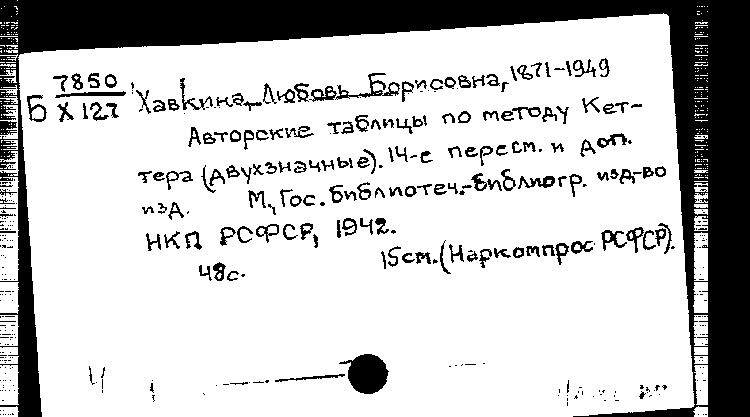 Б 7850
Х 127
Хавкина, Любовь Борисовна, 1871-1949
Авторские таблицы по методу Кет-
тера (двухзначные). 14-е пересм. и доп.
изд. М., Гос. библиотеч.-библиогр. изд-во
НКП РСФСР, 1942.
48с. 15см. (Наркомпрос РСФСР).
Ч